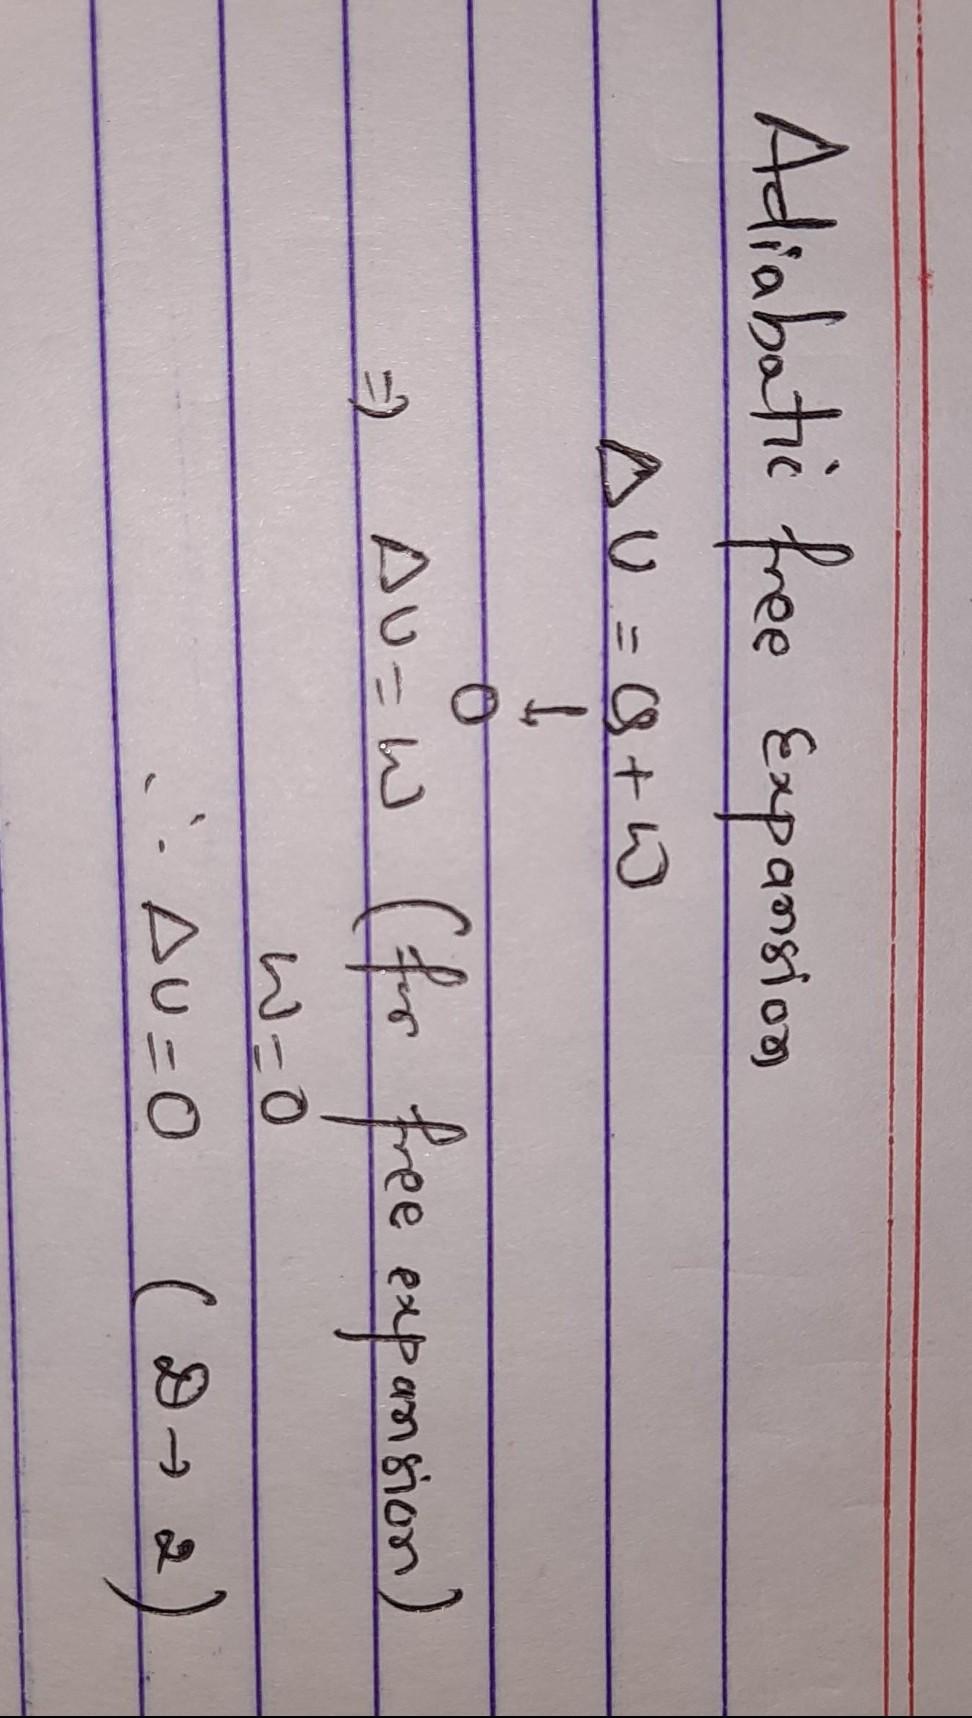 Adiabatic free Expansion
ΔU = Q + W
↓
0
⇒ ΔU = W (for free expansion)
W = 0
∴ ΔU = 0 (D → 2)